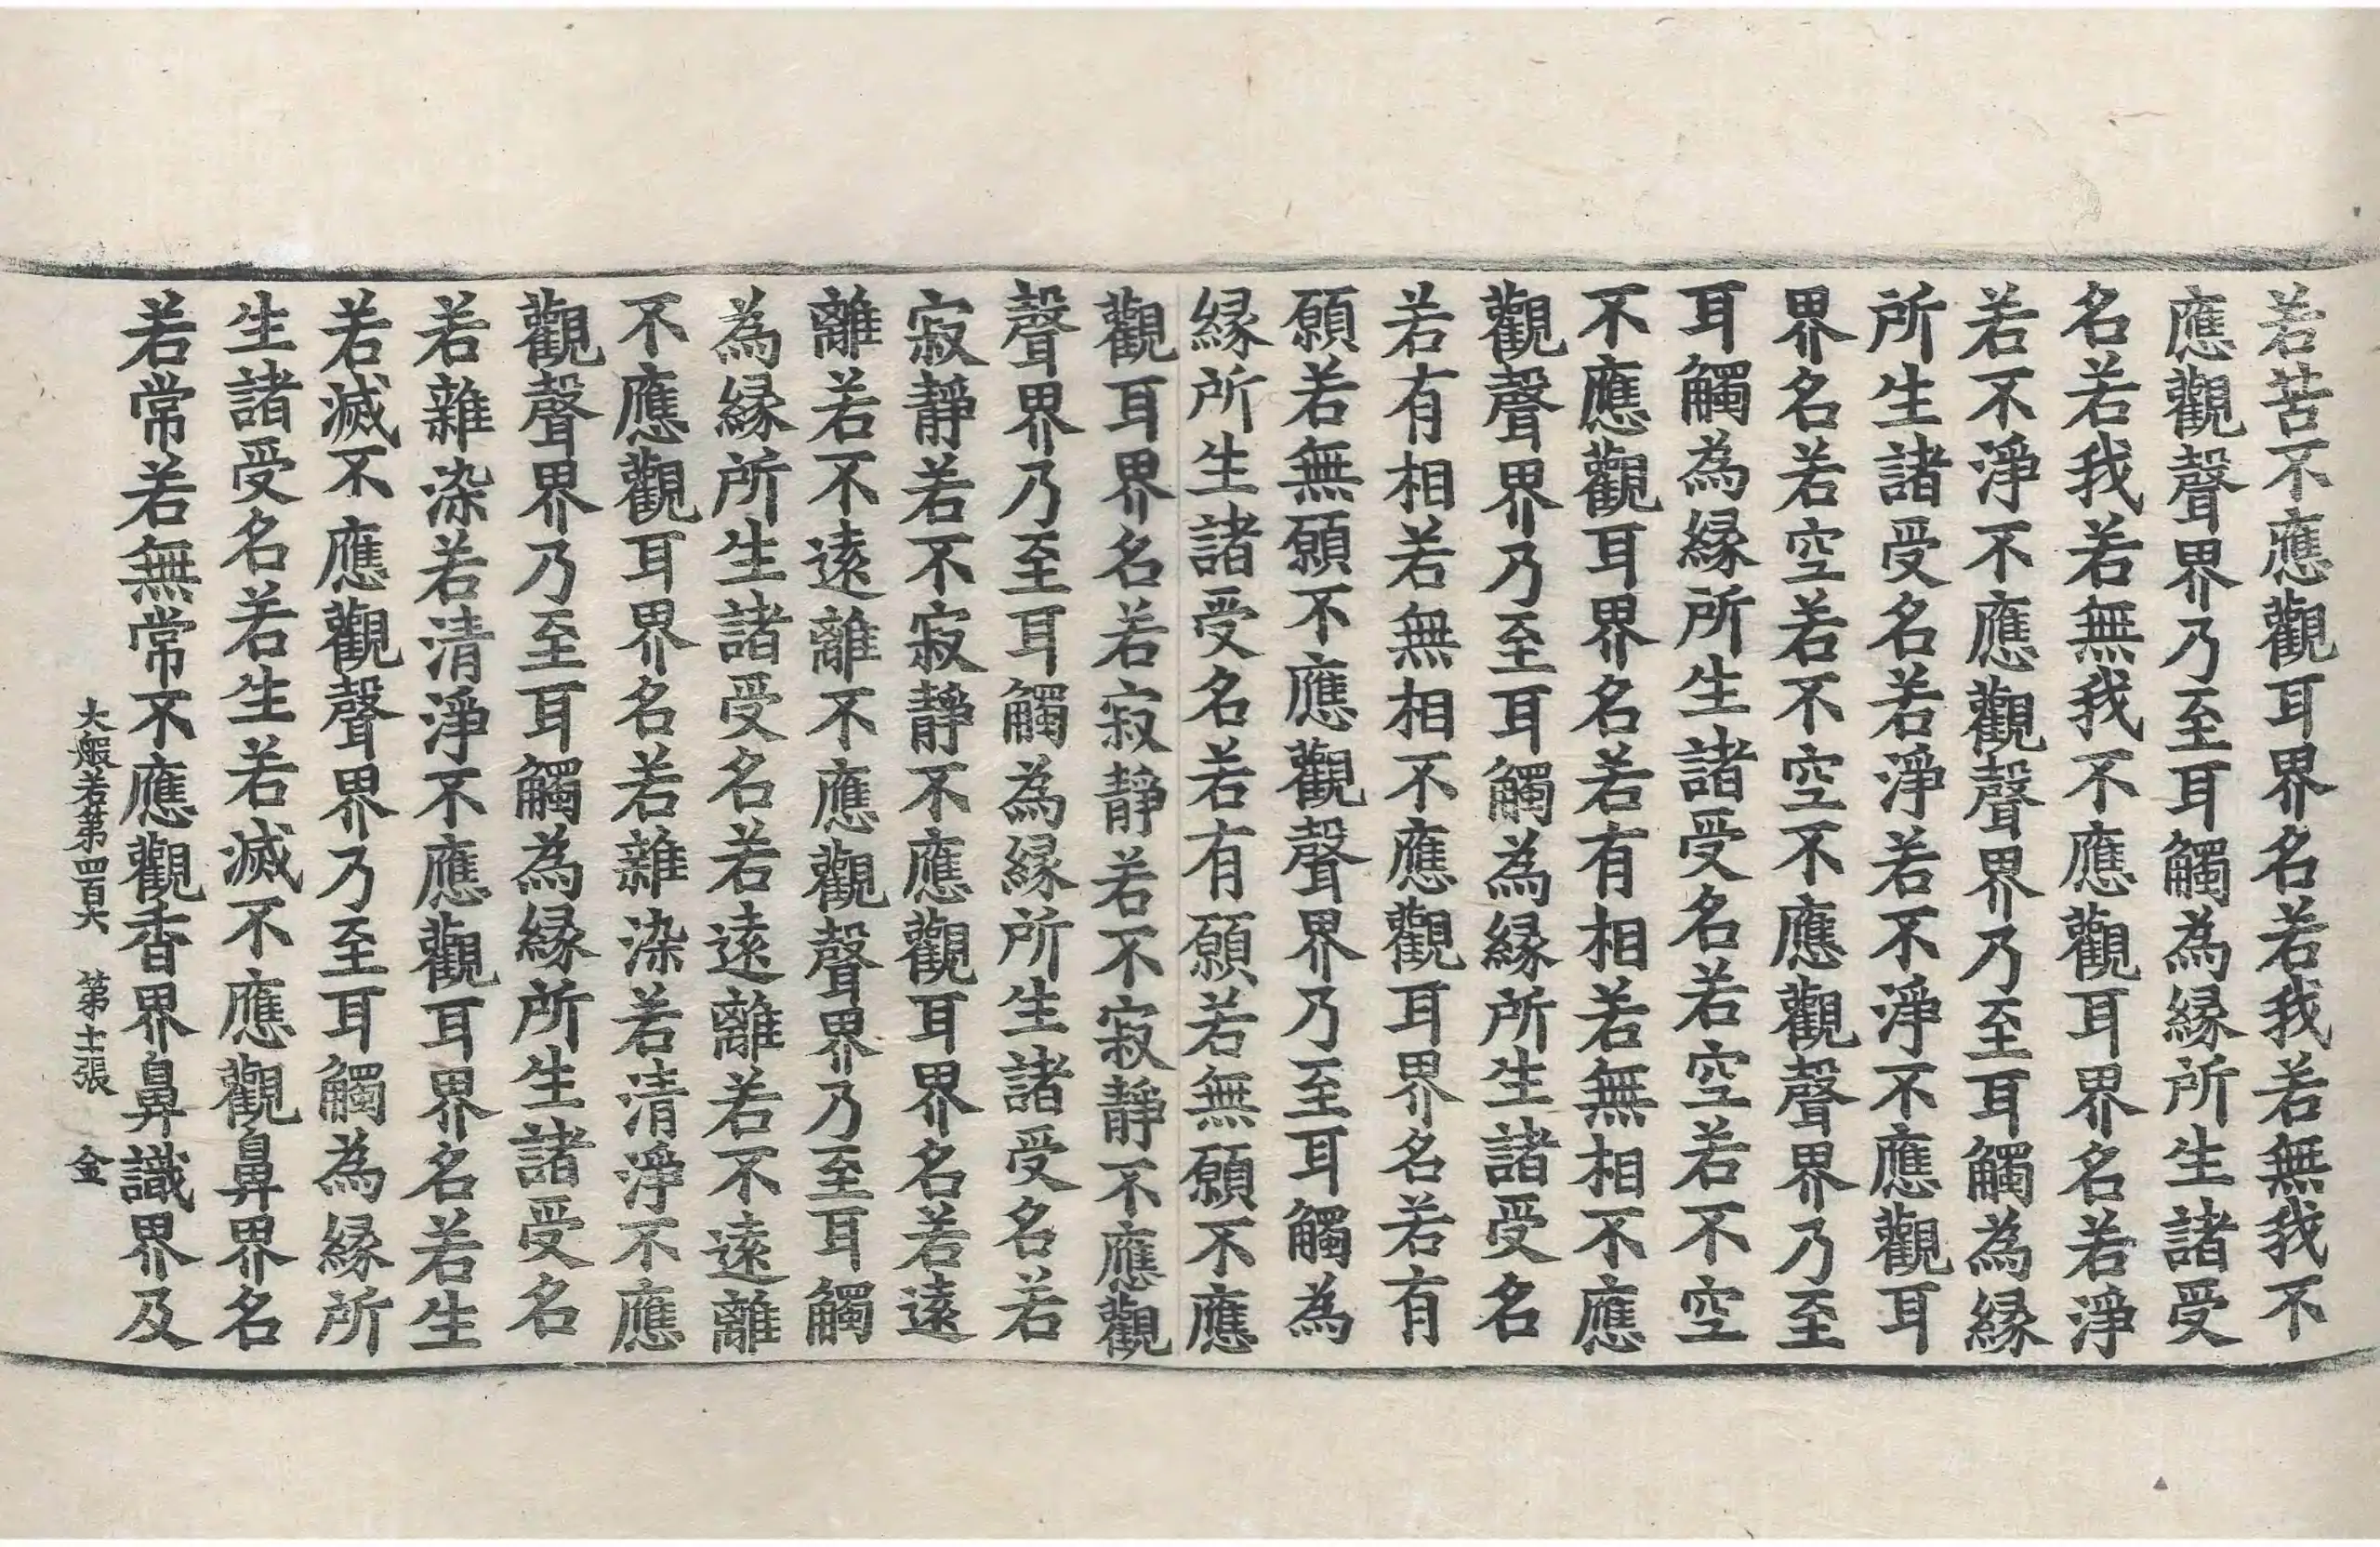 若苦不應觀耳界名若我若無我不
應觀聲界乃至耳觸為緣所生諸受
名若我若無我不應觀耳界名若淨
若不淨不應觀聲界乃至耳觸為緣
所生諸受名若淨若不淨不應觀耳
界名若空若不空不應觀聲界乃至
耳觸為緣所生諸受名若空若不空
不應觀耳界名若有相若無相不應
觀聲界乃至耳觸為緣所生諸受名
若有相若無相不應觀耳界名若有
願若無願不應觀聲界乃至耳觸為
緣所生諸受名若有願若無願不應
觀耳界名若寂靜若不寂靜不應觀
聲界乃至耳觸為緣所生諸受名若
寂靜若不寂靜不應觀耳界名若遠
離若不遠離不應觀聲界乃至耳觸
為緣所生諸受名若遠離若不遠離
不應觀耳界名若雜染若清淨不應
觀聲界乃至耳觸為緣所生諸受名
若雜染若清淨不應觀耳界名若生
若滅不應觀聲界乃至耳觸為緣所
生諸受名若生若滅不應觀鼻界名
若常若無常不應觀香界鼻識界及
大般若第四百六 第十一張 金